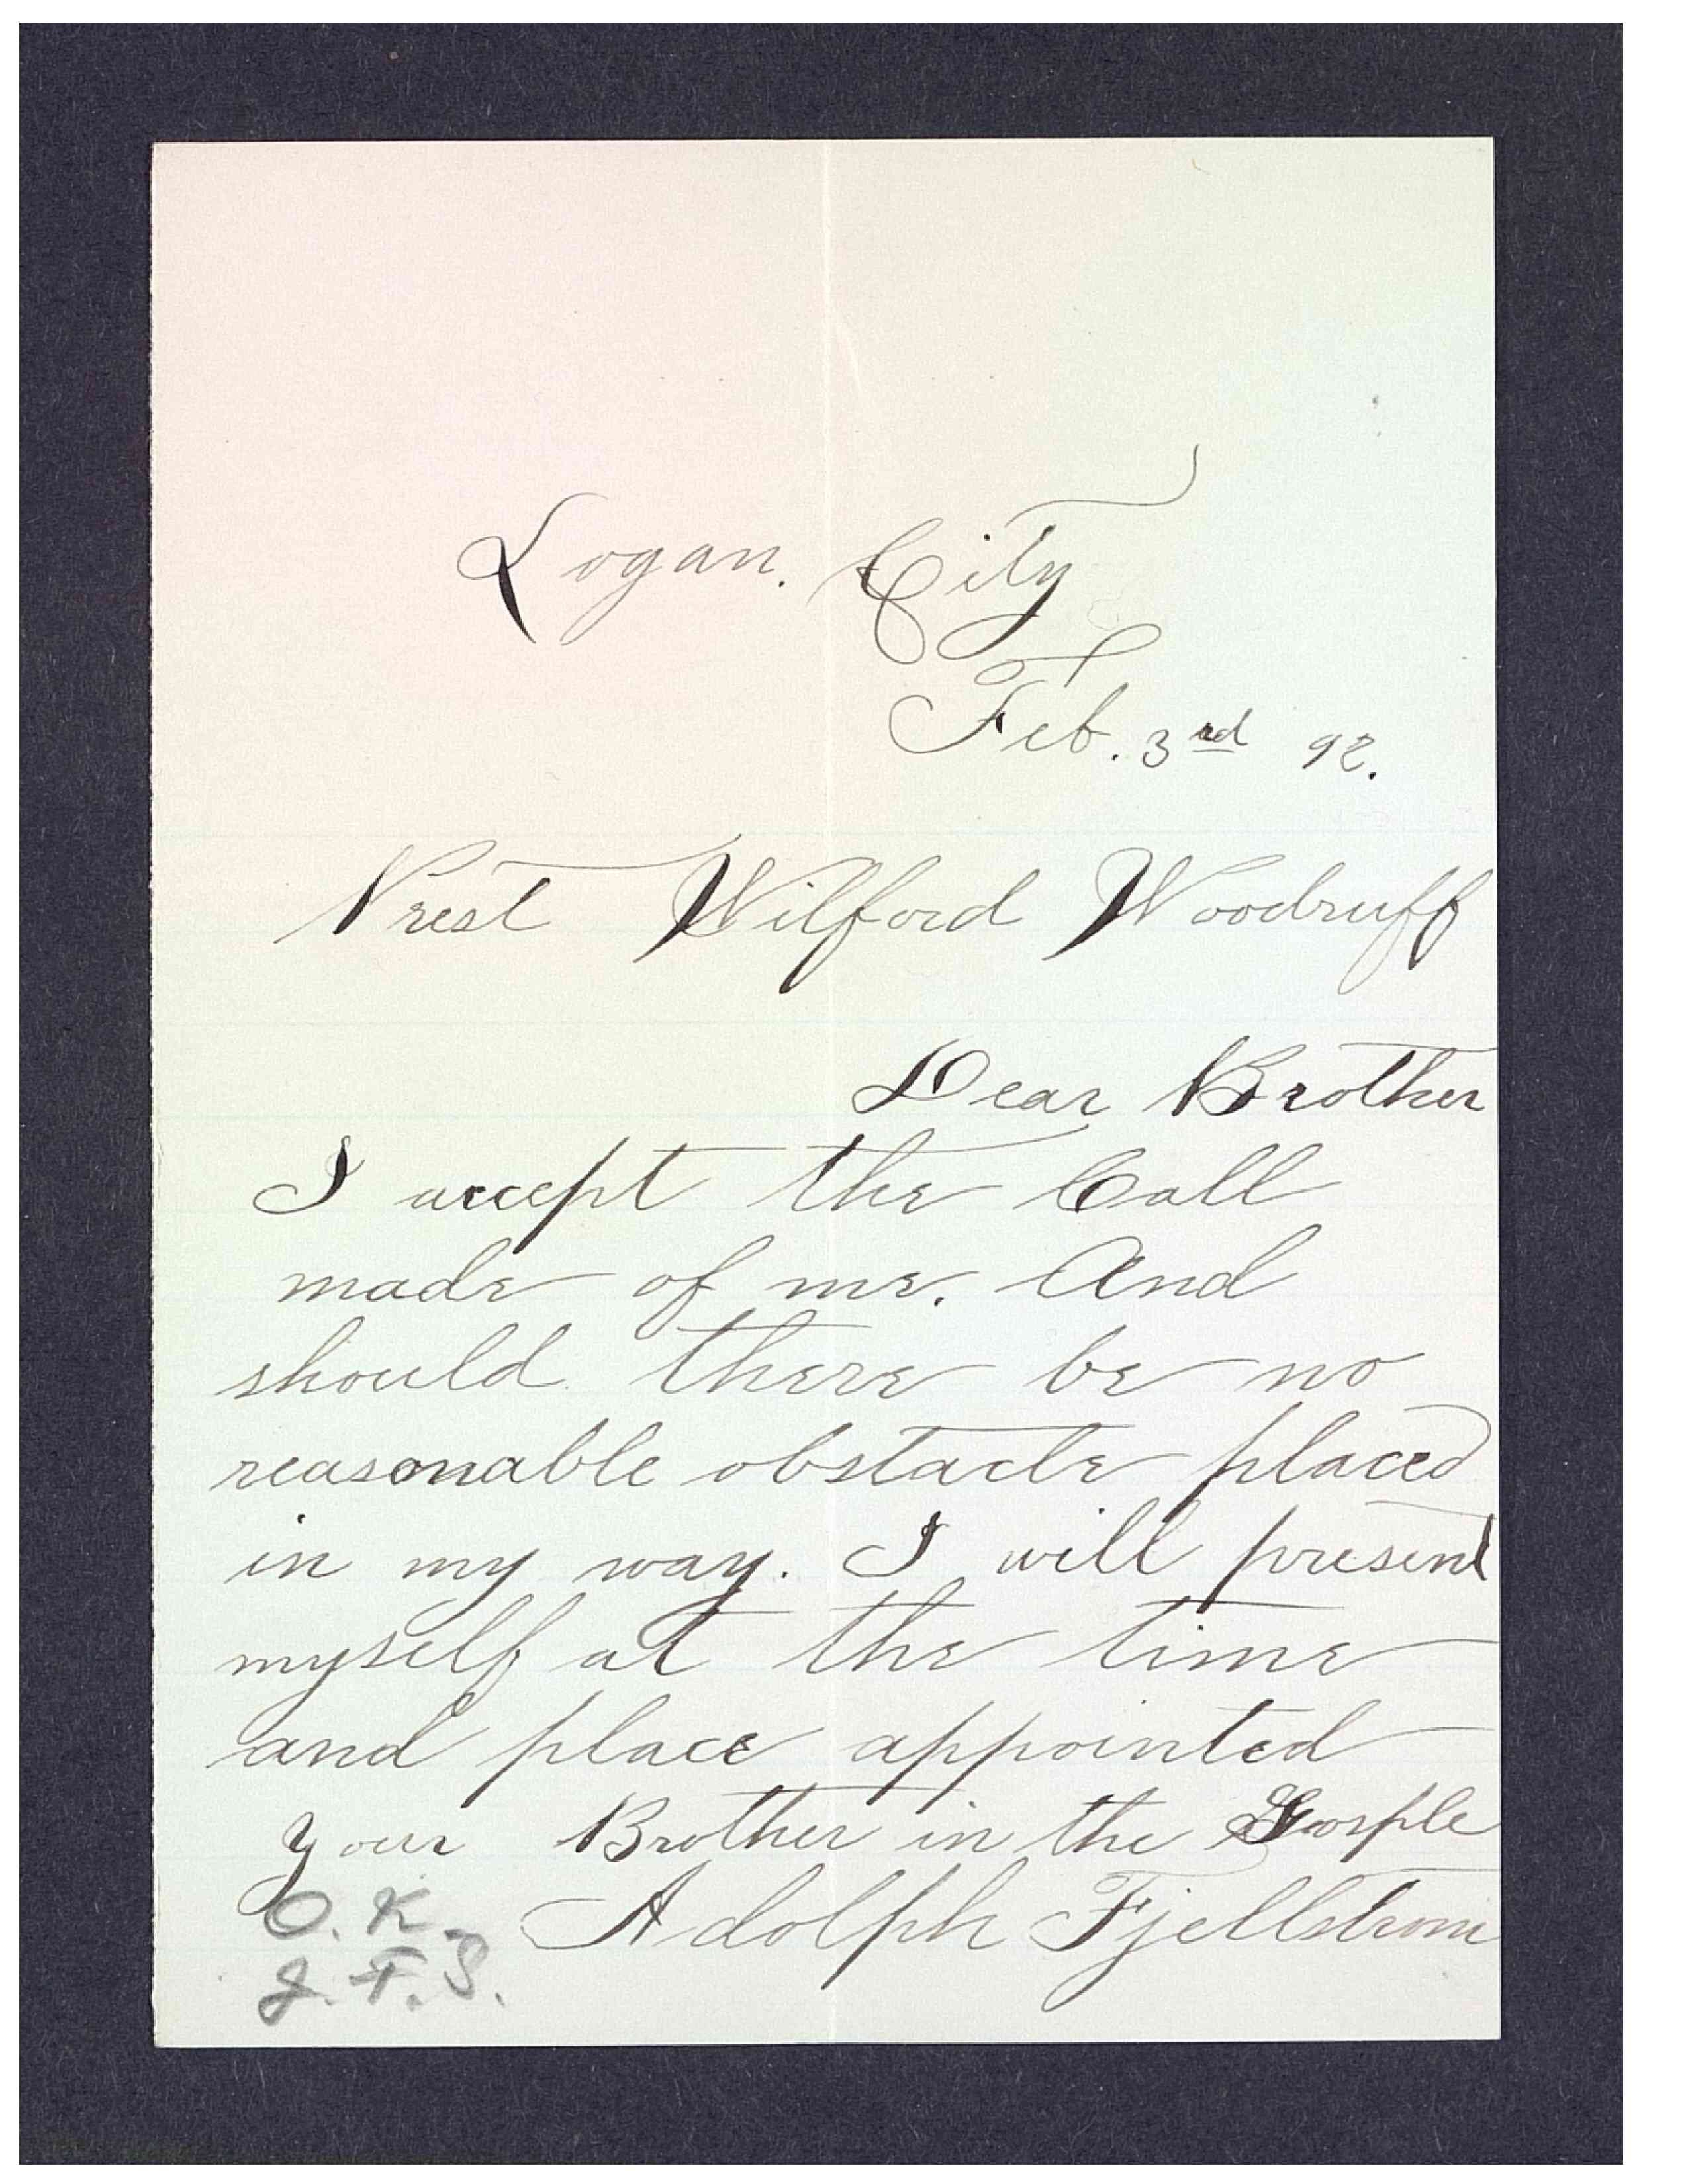 Logan. City
Feb. 3rd 92.
Prest Wilford Woodruff
Dear Brother
I accept the Call
made of me. And
should there be no
reasonable obstacle placed
in my way. I will present
myself at the time
and place appointed
Your Brother in the Gosple
Adolph Fjellstrom
O.K.
J.F.S.